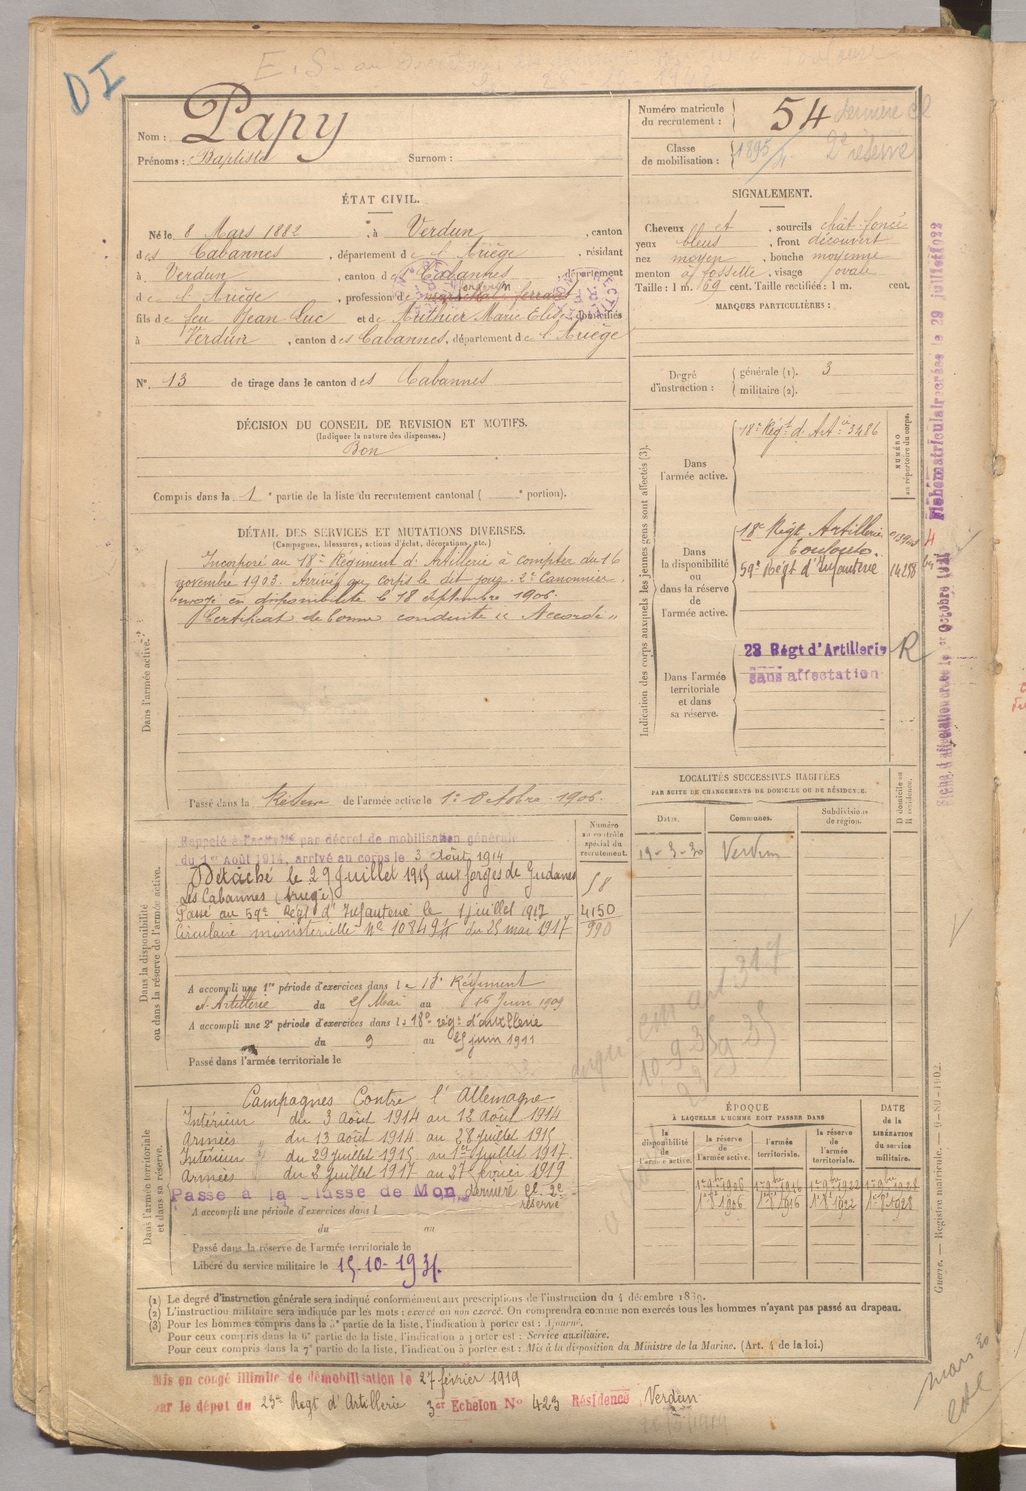 DI
Nom : Papy
Prénoms : Baptiste Surnom :
Numéro matricule du recrutement : 54
Classe de mobilisation : 1895
dernière Cl
2e réserve
ÉTAT CIVIL.
Né le 8 Mars 1882, à Verdun, canton
des Cabannes, département de l'Ariège, résidant
à Verdun, canton des Cabannes, département
de l'Ariège, profession de maréchal ferrant
fils de feu Jean Luc et de Authier Marie Elise, domiciliés
à Verdun, canton des Cabannes, département de l'Ariège
N° 13 de tirage dans le canton des Cabannes
DÉCISION DU CONSEIL DE REVISION ET MOTIFS.
(Indiquer la nature des dispenses.)
Bon
Compris dans la 1e partie de la liste du recrutement cantonal ( e portion).
SIGNALEMENT.
Cheveux et, sourcils chât foncé
yeux bleus, front découvert
nez moyen, bouche moyenne
menton à fossette, visage ovale
Taille : 1 m. 69 cent. Taille rectifiée : 1 m. cent.
MARQUES PARTICULIÈRES :
Degré d'instruction : générale (1). 3
militaire (2).
Indication des corps auxquels les jeunes gens sont affectés (3).
NUMÉRO au répertoire du corps.
Dans l'armée active.
18e Régt d'Art ie 3486
Dans la disponibilité ou dans la réserve de l'armée active.
18e Régt Artillerie
Toulouse.
59e Régt d'Infanterie 14258
Dans l'armée territoriale et dans sa réserve.
23 Régt d'Artillerie R
sans affectation
DÉTAIL DES SERVICES ET MUTATIONS DIVERSES.
(Campagnes, blessures, actions d'éclat, décorations, etc.)
Dans l'armée active.
Incorporé au 18e Régiment d'Artillerie à compter du 16
novembre 1903. Arrivé au corps le dit jour. 2e Canonnier.
Envoyé en disponibilité le 18 septembre 1906.
Certificat de bonne conduite « Accordé »
Passé dans la Réserve de l'armée active le 1er Octobre 1906.
LOCALITÉS SUCCESSIVES HABITÉES
PAR SUITE DE CHANGEMENTS DE DOMICILE OU DE RÉSIDENCE.
Dates. Communes. Subdivisions de région. D domicile ou R résidence.
19-3-30 Verdun
Dans la disponibilité ou dans la réserve de l'armée active.
Numéro au contrôle spécial du recrutement.
Rappelé à l'activité par décret de mobilisation générale
du 1er Août 1914, arrivé au corps le 3 Août 1914
Détaché le 29 Juillet 1915 aux forges de Gudanes
Les Cabannes (Ariège) 58
Passé au 59e Régt d'Infanterie le 1 juillet 1917 4150
Circulaire ministérielle No 10849 du 25 mai 1917 990
A accompli une 1re période d'exercices dans le 18e Régiment
d'Artillerie du 25 Mai au 16 Juin 1909
A accompli une 2e période d'exercices dans le 18e régt d'artillerie
du 9 au 25 juin 1911
Passé dans l'armée territoriale le
Dans l'armée territoriale et dans sa réserve.
Campagnes Contre l'Allemagne
Intérieur du 3 Août 1914 au 12 Août 1914
Armées " du 13 Août 1914 au 28 juillet 1915
Intérieur " du 29 juillet 1915 au 1er juillet 1917
Armées du 2 juillet 1917 au 27 février 1919
Passé à la Classe de Mon dernière Cl. 2e réserve
A accompli une période d'exercices dans l
du au
Passé dans la réserve de l'armée territoriale le
Libéré du service militaire le 15-10-1931.
ÉPOQUE
À LAQUELLE L'HOMME DOIT PASSER DANS
DATE DE LA LIBÉRATION du service militaire.
la disponibilité de l'armée active. la réserve de l'armée active. l'armée territoriale. la réserve de l'armée territoriale.
1er 9bre 1906 1er 9bre 1916 1er 9bre 1922 1er 9bre 1928
1er 8bre 1906 1er 8bre 1916 1er 8bre 1922 1er 8bre 1928
(1) Le degré d'instruction générale sera indiqué conformément aux prescriptions de l'instruction du 4 décembre 1889.
(2) L'instruction militaire sera indiquée par les mots : exercé ou non exercé. On comprendra comme non exercés tous les hommes n'ayant pas passé au drapeau.
(3) Pour les hommes compris dans la 5e partie de la liste, l'indication à porter est : Ajourné.
Pour ceux compris dans la 6e partie de la liste, l'indication à porter est : Service auxiliaire.
Pour ceux compris dans la 7e partie de la liste, l'indication à porter est : Mis à la disposition du Ministre de la Marine. (Art. 4 de la loi.)
Mis en congé illimité de démobilisation le 27 février 1919
par le dépôt du 23e Régt d'Artillerie 3er Echelon No 423 Résidence Verdun
Guerre. — Registre matricule. — 9-89-1902.
Fiche matriculaire créée le 29 juillet 1922